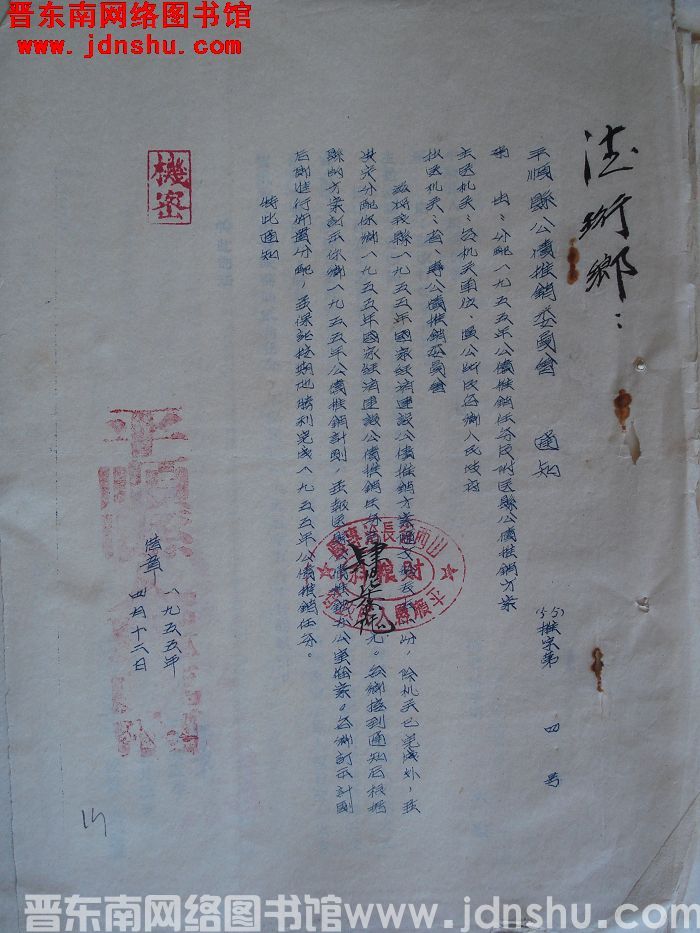 晋东南网络图书馆
www.jdnshu.com
机密
平顺县公债推销委员会 通知
(55)推字第 四 号
事 由：分配一九五五年公债推销任务及附送县公债推销方案
主送机关：各机关单位、区公所民各乡人民政府
抄送机关：省、专公债推销委员会
兹将我县一九五五年国家经济建设公债推销方案随文发去一份，除机关已完成外，并
决定分配你乡一九五五年国家经济建设公债推销任务 元。各乡接到通知后根据
县的方案订出你乡一九五五年公债推销计划，并报送县公债推销办公室备案。各乡订出计划
后即进行布置分配，并保证按期地胜利完成一九五五年公债推销任务。
特此通知
盖章
一九五五年
四月十二日
晋东南网络图书馆 www.jdnshu.com